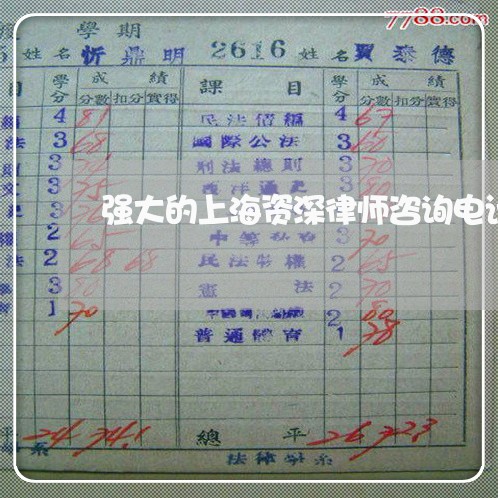 7788.com
學期
姓名 忻鼎明 2616 姓名 賈泰德
目 學分 成績 課目 學分 成績
分數 扣分 實得 分數 扣分 實得
4 81 民法債編 4 67
法 3 68 國際公法 3 60
3 刑法總則 3 70
文 3 75 西洋通史 3 80
強大的上海资深律师咨询电
2 65 3 70
法 2 68 68 民法物權 2 65
3 80 憲法 2 70
育 1 70 2 80
普通體育 1 78
平 24 74.1 總平 26 72.3
系 法律學系